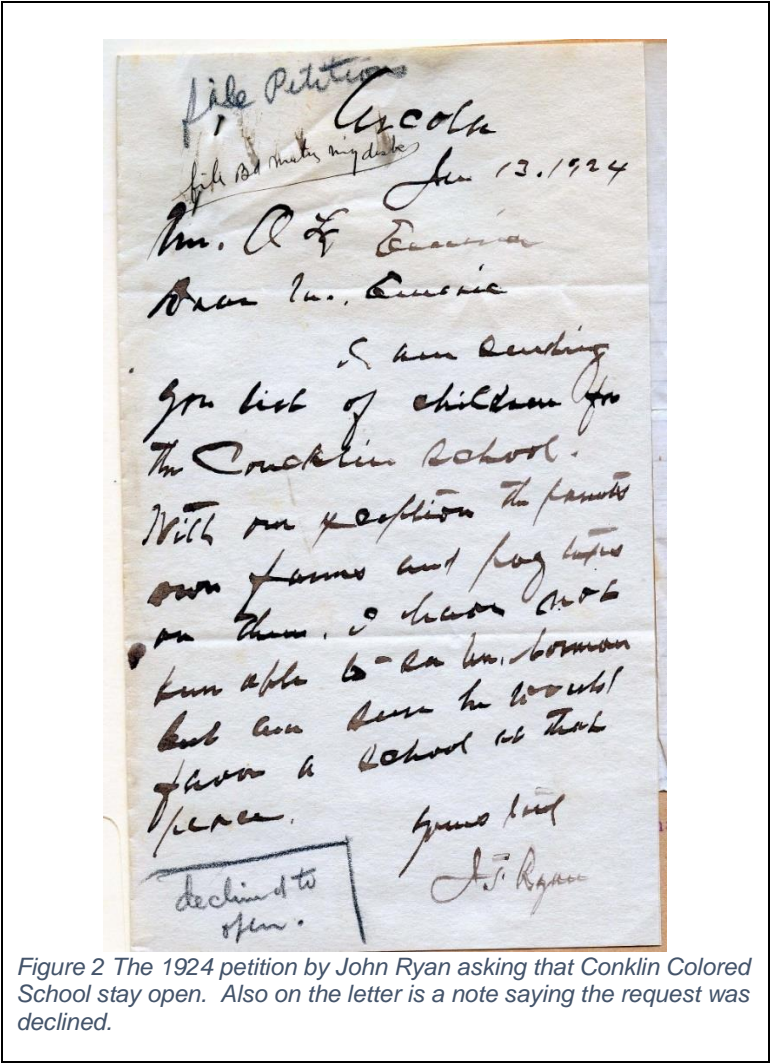 file Petitions
Arcola
file Bd my desk
13. 1924
Mr. O L Emerick
Dear Mr. Emerick
I am sending
you list of children for
the Concklin school.
With one exception the parents
own farms and pay taxes
on them. I have not
been able to see Mr.
but am sure he would
favor a school at that
place.
Yours truly
Ryan
declined to
open.
Figure 2 The 1924 petition by John Ryan asking that Conklin Colored
School stay open. Also on the letter is a note saying the request was
declined.